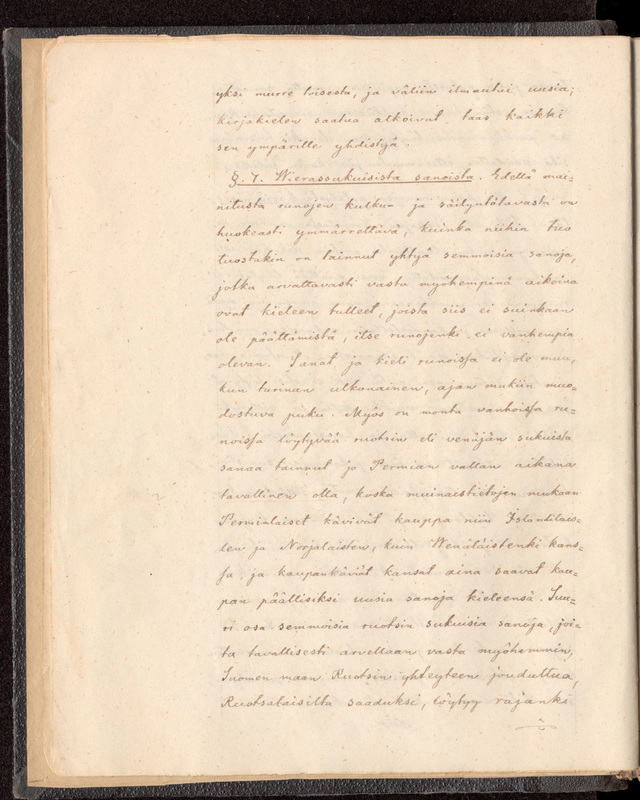 yksi murre toisesta, ja väliin ilmautui uusia;
kirjakielen saatua alkoivat taas kaikki
sen ympärille yhdistyä.
§. 7. Wierassukuisista sanoista. Edellä mai-
nitusta runojen kulku- ja säilyntätavasta on
huokeasti ymmärrettävä, kuinka niihin tuo
tuostakin on tainnut yhtyä semmoisia sanoja,
jotka arvattavasti vasta myöhempinä aikoina
ovat kieleen tulleet, joista siis ei suinkaan
ole päättämistä, itse runojenki ei vanhempia
olevan. Sanat ja kieli runoissa ei ole muu,
kun tarinan ulkonainen, ajan mukiin muo-
dostuva puku. Myös on monta vanhoissa ru-
noissa löytyvää ruotsin eli venäjän sukuista
sanaa tainnut jo Permian vallan aikana
tavallinen olla, koska muinaistietojen mukaan
Permialaiset kävivät kauppa niin Islantilais-
ten ja Norjalaisten, kuin Wenäläistenki kans-
sa, ja kaupankäviät kansat aina saavat kau-
pan päällisiksi uusia sanoja kieleensä. Suu-
ri osa semmoisia ruotsin sukuisia sanoja, joi-
ta tavallisesti arvellaan vasta myöhemmin,
Suomen maan Ruotsin yhteyteen jouduttua,
Ruotsalaisilta saaduksi, löytyy rajanki